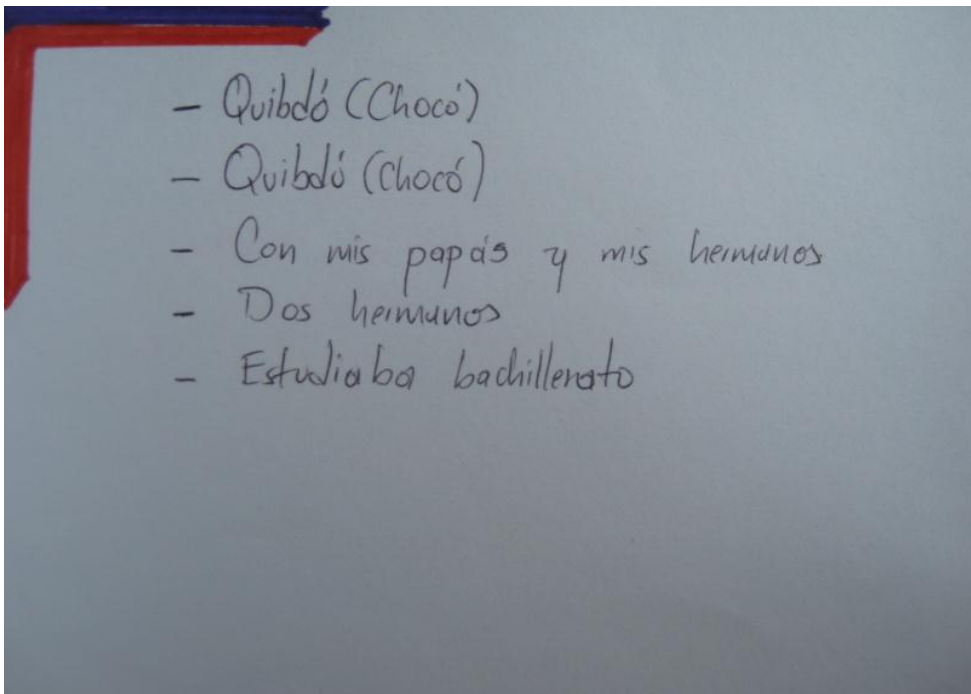 - Quibdó (Chocó)
- Quibdó (Chocó)
- Con mis papás y mis hermanos
- Dos hermanos
- Estudiaba bachillerato